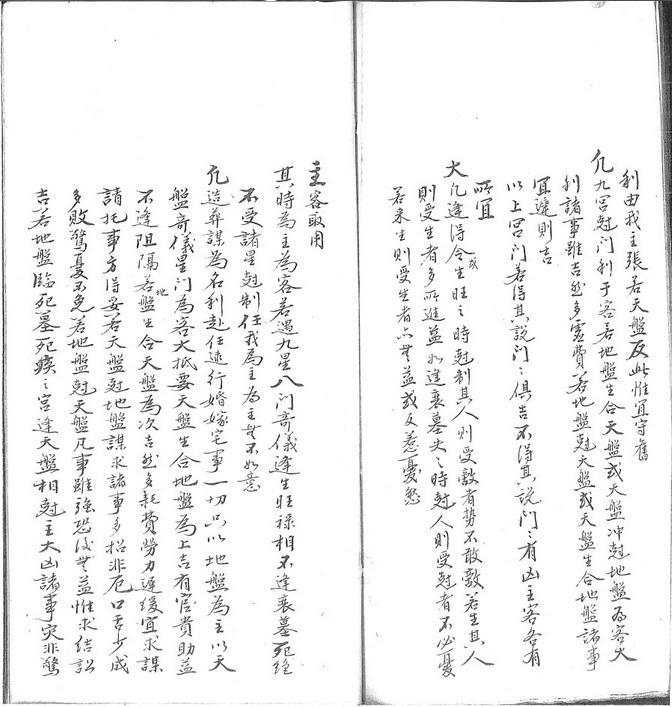 利由我主張若天盤反此惟宜守舊
凡九宮尅门利于客若地盤生合天盤或天盤冲尅地盤为客大
利諸事雖吉然多虛費若地盤尅天盤或天盤生合地盤諸事
宜遲則吉
以上宮门若得其說门〻俱吉不得其說门〻有凶主客各有
所宜
大凡逢得令或生旺之時尅制其人則受敵者势不敢敵若生其人
則受生者多所進益如逢衰墓失〻時尅人則受尅者不必憂
若来生則受生者亦無益或反惹憂愁
主客取用
其時為主為客若遇九星八门奇儀逢生旺禄相不逢衰墓死絕
不受諸星尅制任我為主為主無不如意
凡造葬謀為名利赴任遠行婚嫁宅事一切只以地盤為主以天
盤奇儀星门為客大抵要天盤生合地盤為上吉有官貴助益
不逢阻隔若地盤生合天盤為次吉然多耗費勞力遲緩宜求謀
請托事方得妥若天盤尅地盤謀求諸事多招非厄口舌少成
多敗驚憂不免若地盤尅天盤凡事雖強恐後無益惟求結訟
吉若地盤臨死墓死癈〻宮逢天盤相尅主大凶諸事災非驚